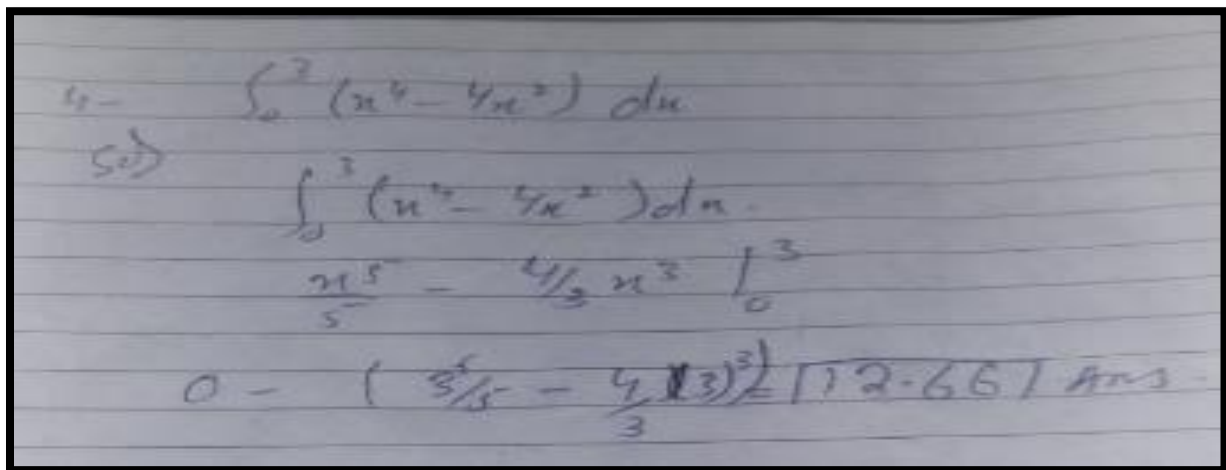 4- ∫₀³ (x⁴ - 4x²) dx
Sol)
∫₀³ (x⁴ - 4x²) dx.
x⁵/5 - 4/3 x³ |₀³
0 - (3⁵/5 - 4/3 (3)³) = 12.66 Ans.